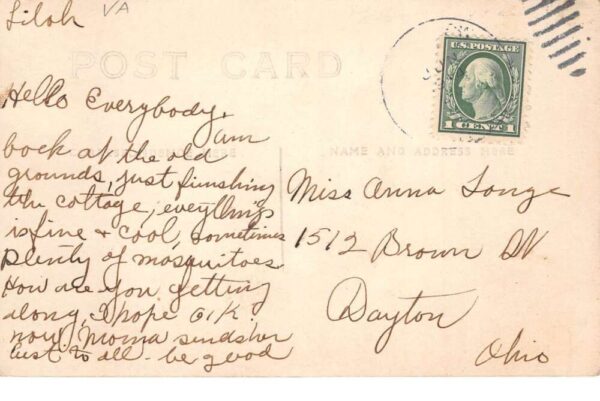 Siloh VA
POST CARD
U.S. POSTAGE
1 CENT 1
Hello Everybody,
am
back at the old
grounds, just finishing
the cottage, everythings
is fine + cool, sometimes
plenty of mosquitoes
How are you getting
along, I hope O.K.
now! Moma sends her
best to all - be good
NAME AND ADDRESS HERE
Miss Anna Longe
1512 Brown St
Dayton
Ohio